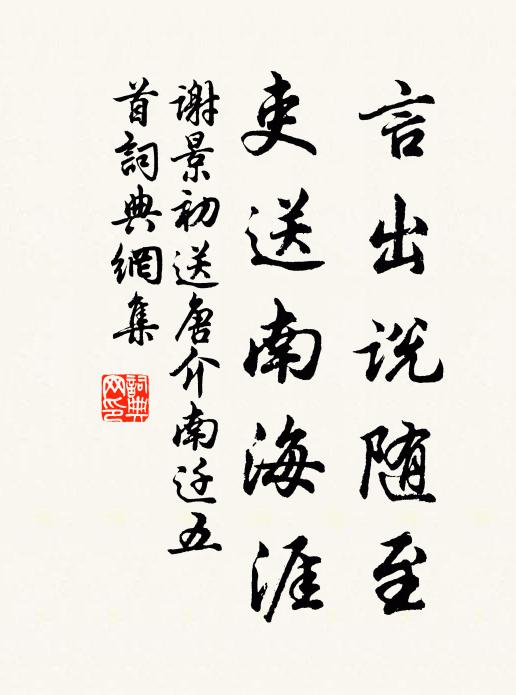 言出说随至
吏送南海涯
谢景初送唐介南迁五
首詞典網集
詞典
网印